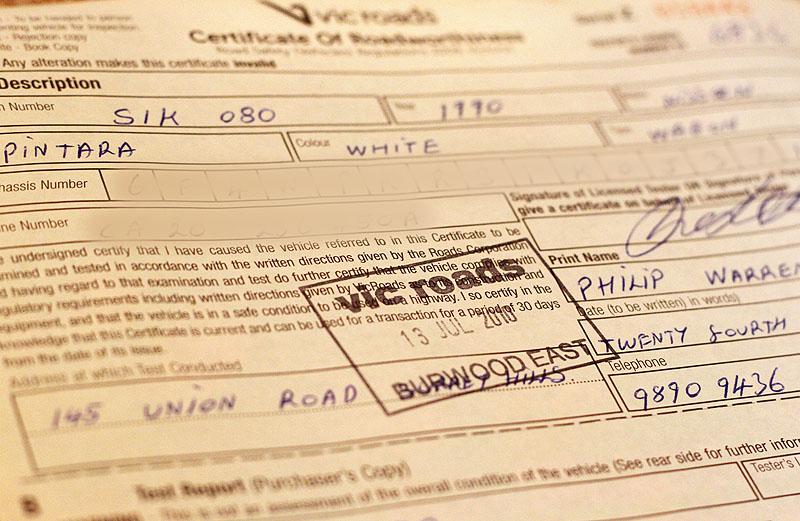 - To be handed to person
presenting vehicle for inspection.
- Rejection copy
- Book Copy
vic roads
Certificate Of Roadworthiness
Any alteration makes this certificate invalid
Description
Number SIK 080 1990
PINTARA Colour WHITE
Chassis Number
Number CA 20
Signature of Licensed Tester
give a certificate on behalf of Licensed
undersigned certify that I have caused the vehicle referred to in this Certificate to be
mined and tested in accordance with the written directions given by the Roads Corporation
d having regard to that examination and test do further certify that the vehicle complies with
gulatory requirements including written directions given by VicRoads and
equipment, and that the vehicle is in a safe condition to be highway. I so certify in the
knowledge that this Certificate is current and can be used for a transaction for a period of 30 days
from the date of its issue.
Print Name
PHILIP WARREN
Date (to be written) in words)
TWENTY FOURTH
Telephone
9890 9436
vic roads
13 JUL 2010
BURWOOD EAST
Address at which Test Conducted
145 UNION ROAD
B Test Report (Purchaser's Copy)
This is not an assessment of the overall condition of the vehicle (See rear side for further infor
Tester's